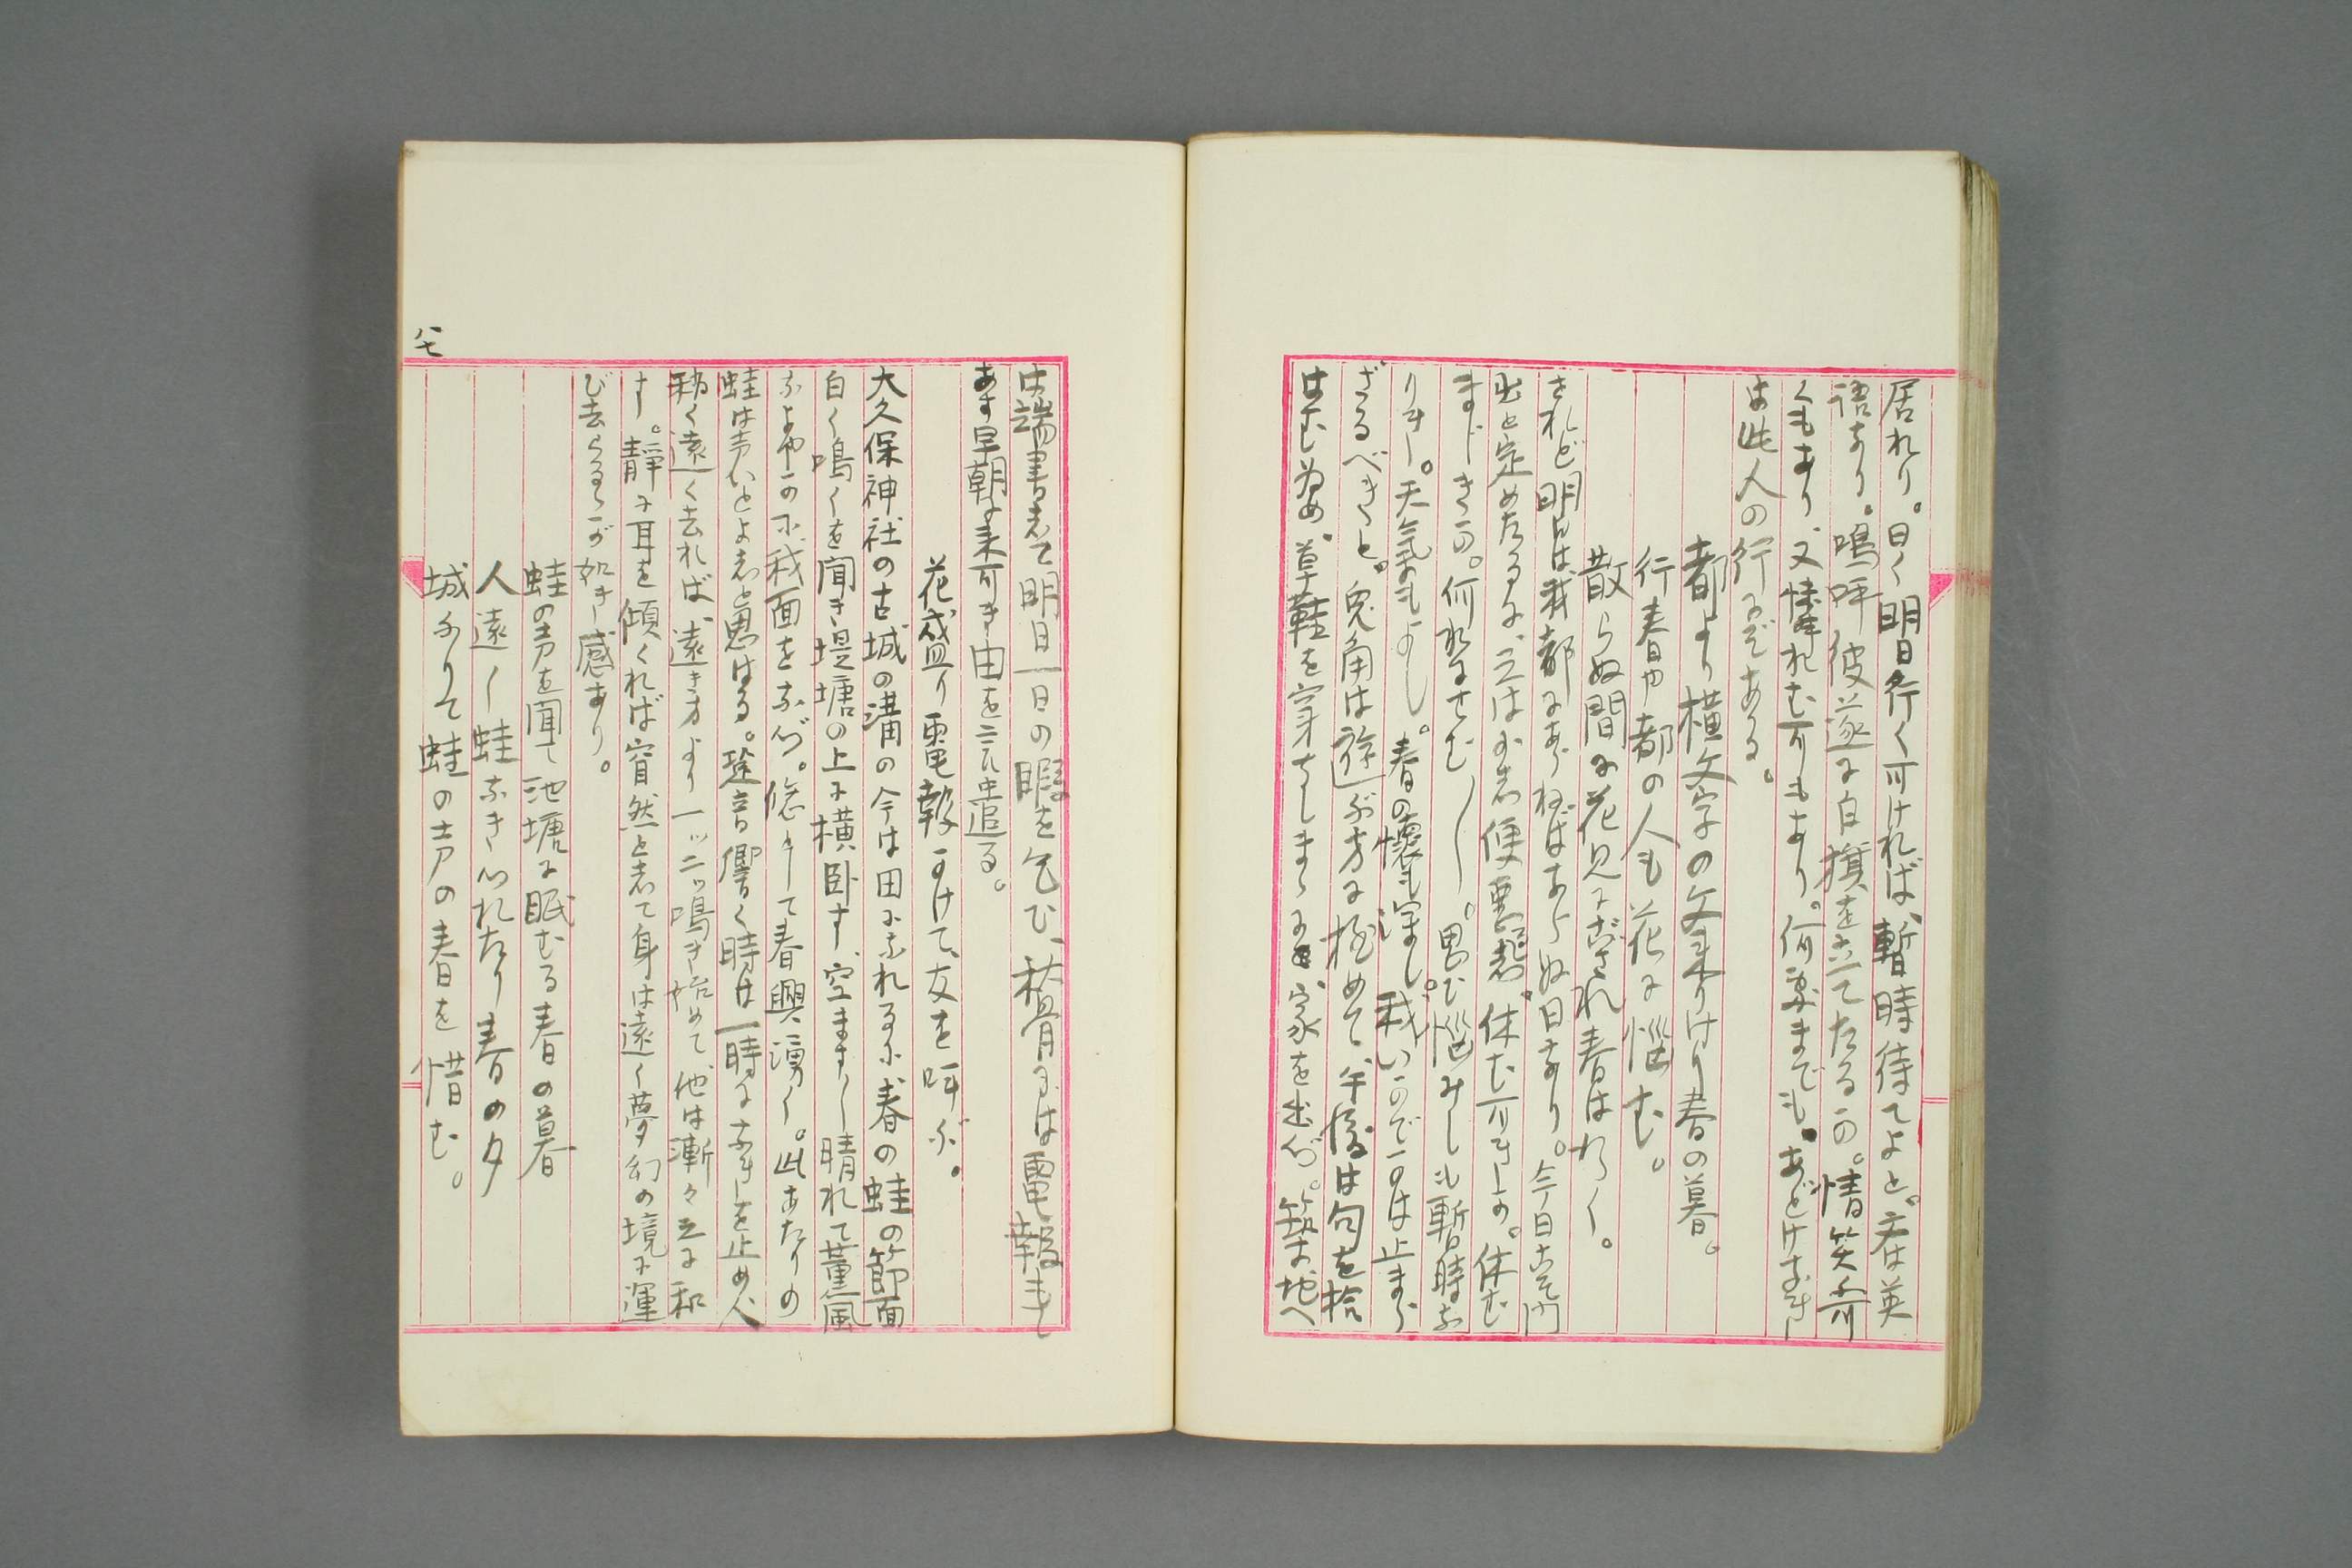 居れり。曰く明日行く可ければ、暫時待てよと。君は英
語あり。嗚呼彼遂に白旗を立てたるか。情笑す可
くもあり、又憐れむ可もあり。何處までも。あどけなき
は此人の行にぞある。
都より横文字の文来りけり春の暮。
行春や都の人も花に悩む。
散らぬ間に花見にござれ春はわく。
されど明日は我都にあらねばあらぬ日なり。今日こそ門
出と定めたるに、之は如何
まじきか。何れにせむ
りき。天氣もよし。春の懐も深し。我いかでかは止まら
ざるべきと。兎角は遊ぶ方に極めて、午後は句を拾
はむ為め、草鞋を穿ちしまゝに、家を出づ。
は端書して明日一日の暇を乞ひ、秋骨には電報もて
あす早朝に来可き由を言ひ送る。
花盛り電報かけて、友を呼ぶ。
大久保神社の古城の溝の今は田になれるに、春の蛙の節面
白く鳴くを聞き堤塘の上に横臥す、空まさしく晴れて薫風
そよやかに、我面をなづ。悠々として春興湧く。此あたりの
蛙は声いとよしと思はる。跫音響く時は一時になきを止め、人
稍く遠く去れば、遠き方より一ッ二ッ鳴き始めて他は漸々之に和
す。静に耳を傾くれば窅然として身は遠く夢幻の境に運
び去らるゝが如き感あり。
蛙の声を聞て池塘に眠むる春の暮
人遠く蛙なきつれたり春の夕
城ありて蛙の声の春を惜む。
八七